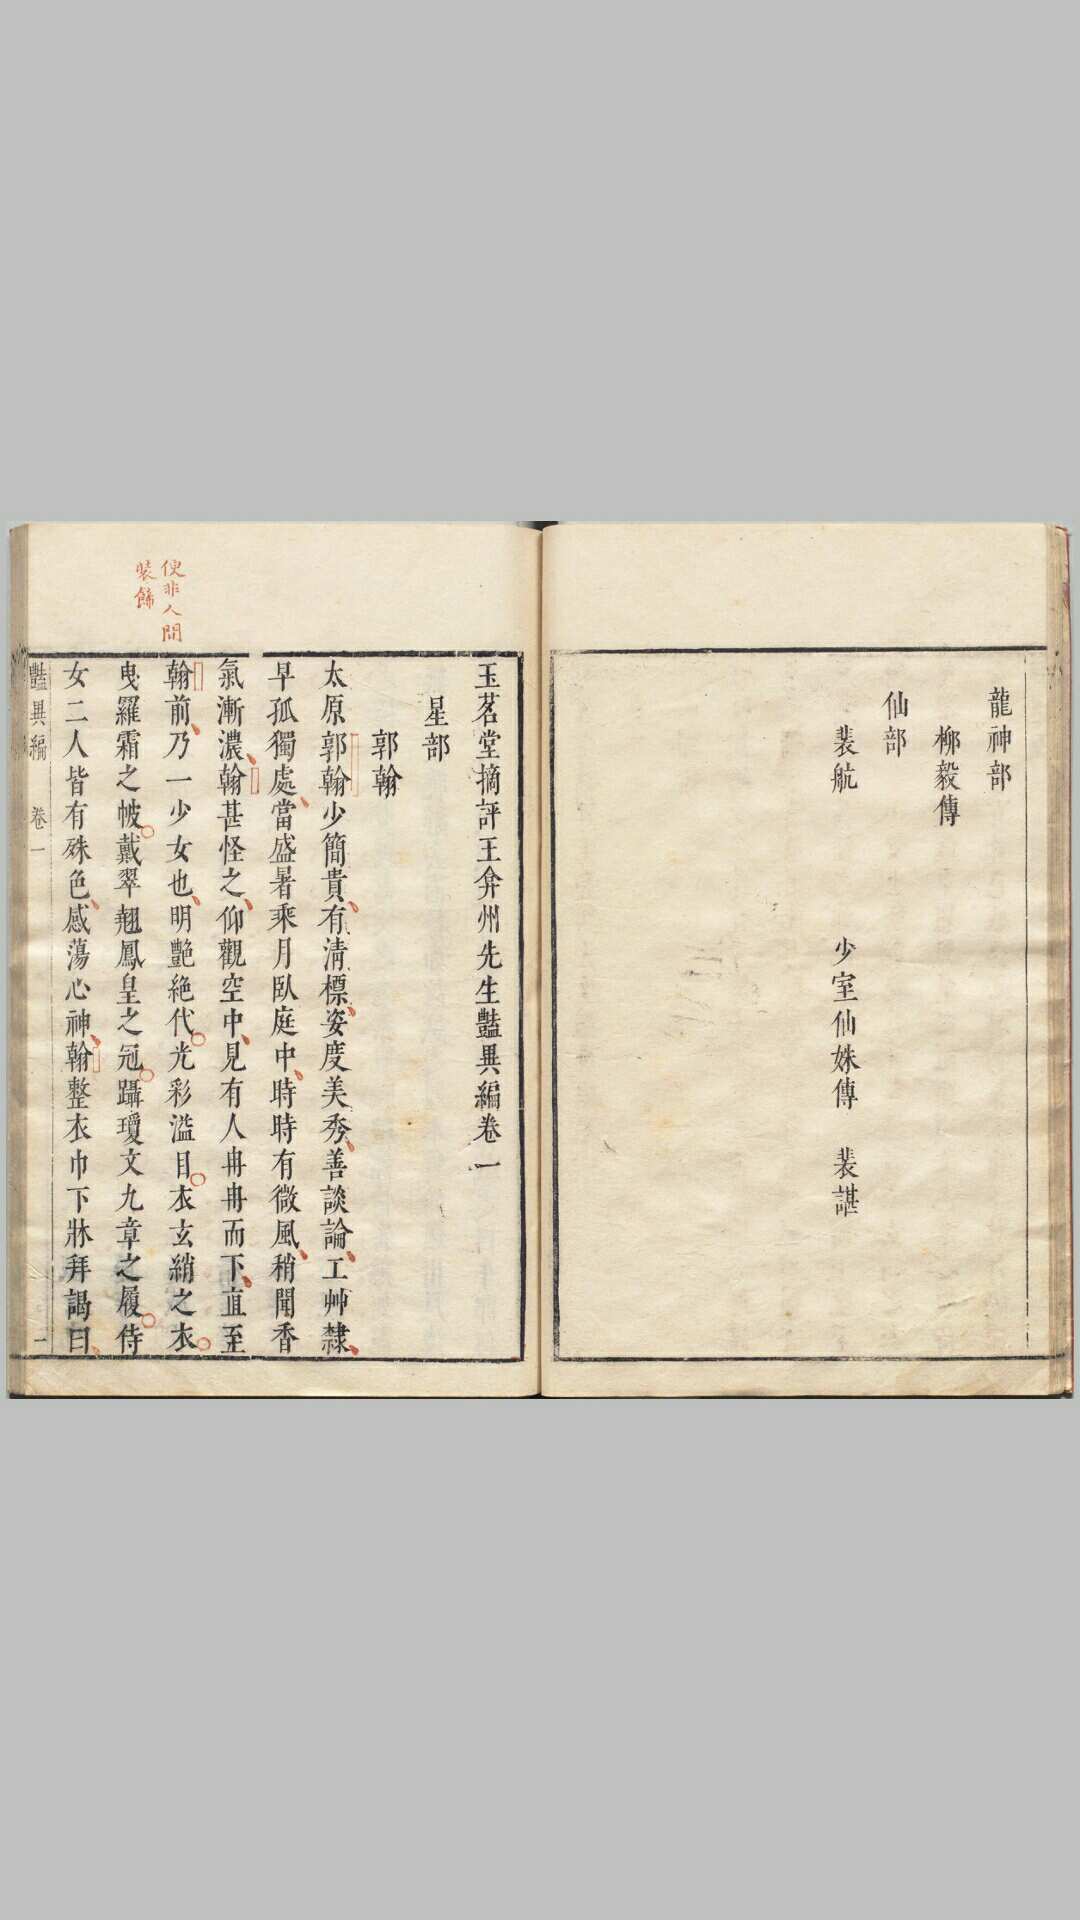 龍神部
柳毅傳
仙部
裴航　少室仙姝傳　裴諶
玉茗堂摘評王弇州先生豔異編卷一
星部
郭翰
太原郭翰少簡貴有清標姿度美秀善談論工艸隸
早孤獨處當盛暑乘月臥庭中時時有微風稍聞香
氣漸濃翰甚怪之仰觀空中見有人冉冉而下直至
翰前乃一少女也明艷絕代光彩溢目衣玄綃之衣
曳羅霜之帔戴翠翹鳳皇之冠躡瓊文九章之履侍
女二人皆有殊色感蕩心神翰整衣巾下牀拜謁曰
豔異編　卷一　一
便非人間
裝飾